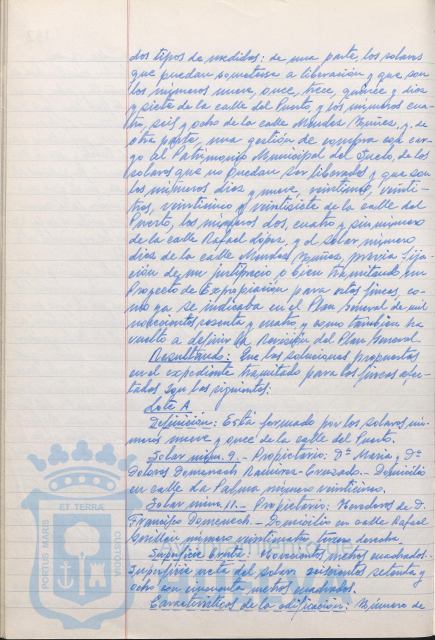 dos tipos de medidas: de una parte, los solares
que puedan someterse a liberación y que son
los números nueve, once, trece, quince y diez
y siete de la calle del Puerto y los números cua-
tro, seis y ocho de la calle Mendez Núñez, y, de
otra parte, una gestión de compra con car-
go al Patrimonio Municipal del Suelo, de los
solares que no puedan ser liberados y que son
los números diez y nueve, veintiuno, veinti-
tres, veinticinco y veintisiete de la calle del
Puerto, los números dos, cuatro y sin número
de la calle Rafael López, y el solar número
diez de la calle Mendez Núñez, previa fija-
ción de un justiprecio o bien tramitando un
Proyecto de Expropiación para estas fincas, co-
mo ya se indicaba en el Plan General de mil
novecientos sesenta y cuatro, y como tambien ha
vuelto a definir la Revisión del Plan General.
Resultando: Que las soluciones propuestas
en el expediente tramitado para las fincas afec-
tadas son las siguientes:
Lote A
Definición: Está formado por los solares nú-
meros nueve y once de la calle del Puerto.
Solar núm. 9.- Propietario: Dª Maria y Dª
Dolores Domenech Ramírez-Cruzado.- Domicilio
en calle La Palma número veinticinco.
Solar núm. 11.- Propietario: Herederos de D.
Francisco Domenech.- Domicilio en calle Rafael
Guillén número veinticuatro, tercero derecha.
Superficie bruta: Novecientos metros cuadrados.
Superficie neta del solar seiscientos setenta y
ocho con cincuenta metros cuadrados.
Características de la edificación: Número de
PORTUS MARIS
ET TERRAE
CUSTODIA